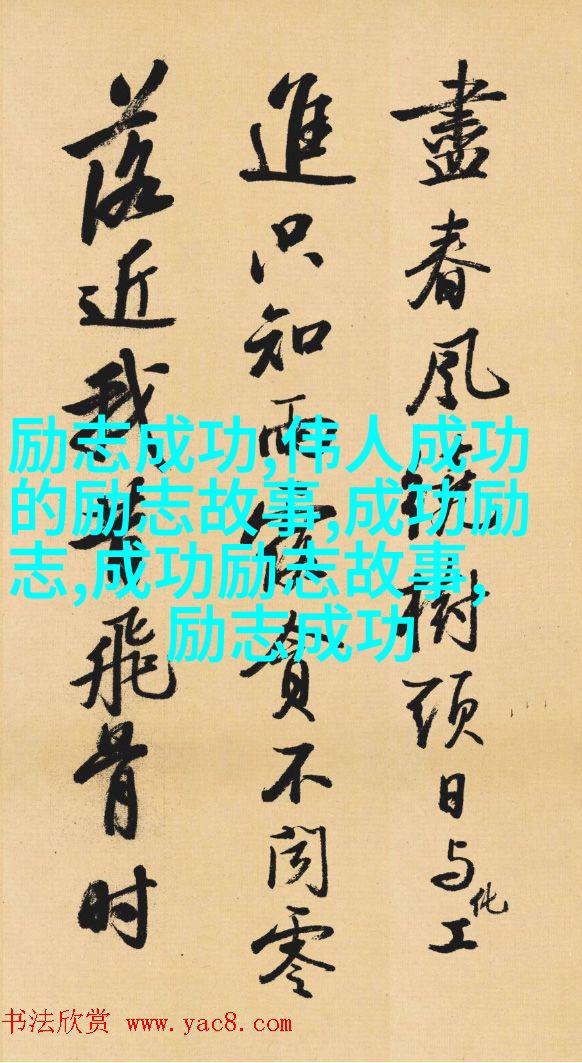 盡春風繞樹頭日与化工
進只知雨露貪不聞零
落近我昔飛骨时
励志成功,伟人成功
的励志故事,成功励
志,成功励志故事,
励志成功
书法欣赏 www.yac8.com